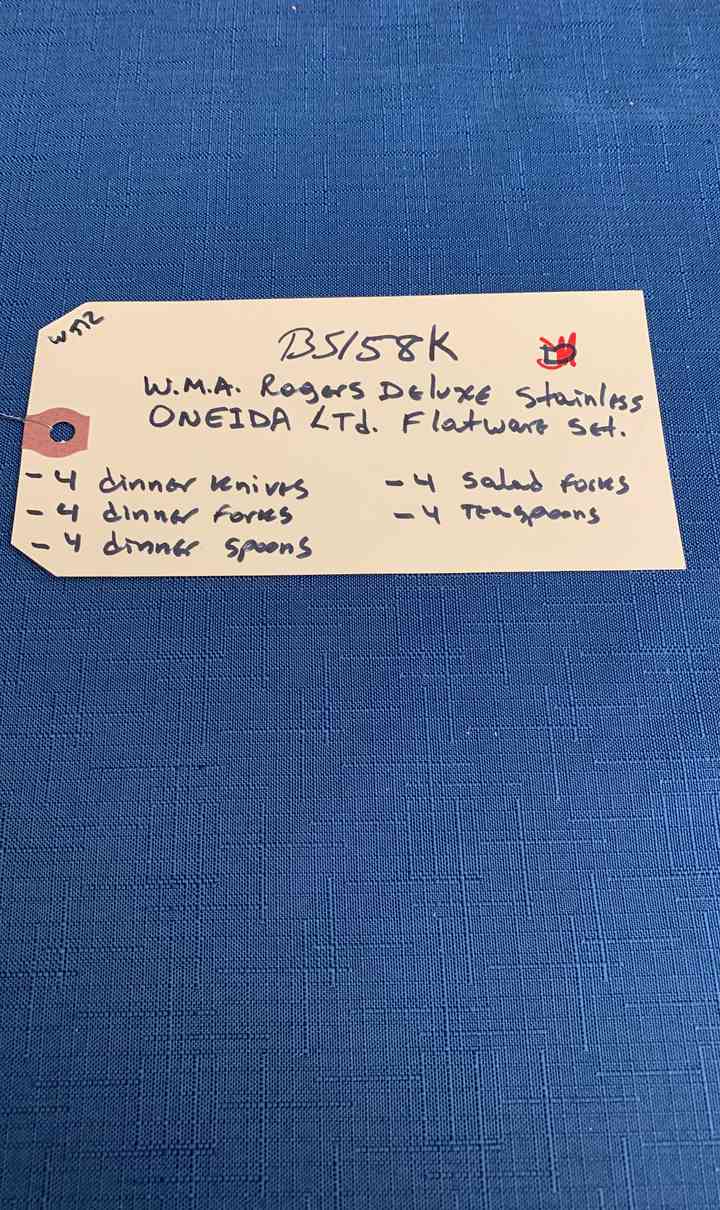 W512
B5158K
W.M.A. Rogers DELUXE Stainless
ONEIDA LTd. Flatware Set.
- 4 dinner knives
- 4 dinner forks
- 4 dinner spoons
- 4 Salad forks
- 4 Teaspoons